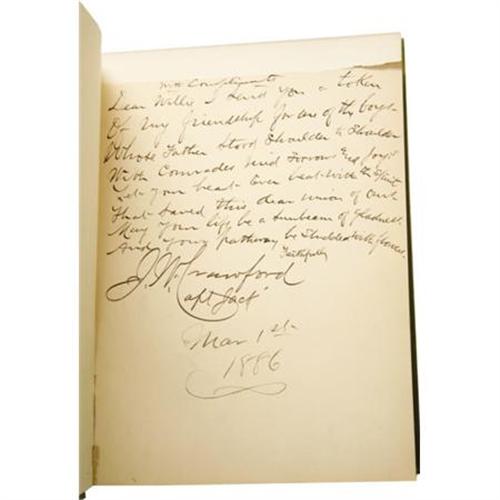 With Compliments
Dear Willie I send you a token
Of my friendship for one of the boys
Whose Father Stood Shoulder to Shoulder
With Comrades mid Sorrows and Joys
Let your heart Ever beat with the Spirit
That Saved this dear union of ours
May Your life be a Sunbeam of gladness
And Your pathway be Studded with flowers.
Faithfully
J. W. Crawford
"Capt Jack"
Mar 1st
1886